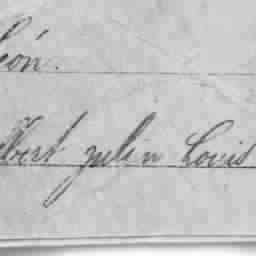 León.
Albert Julien Louis